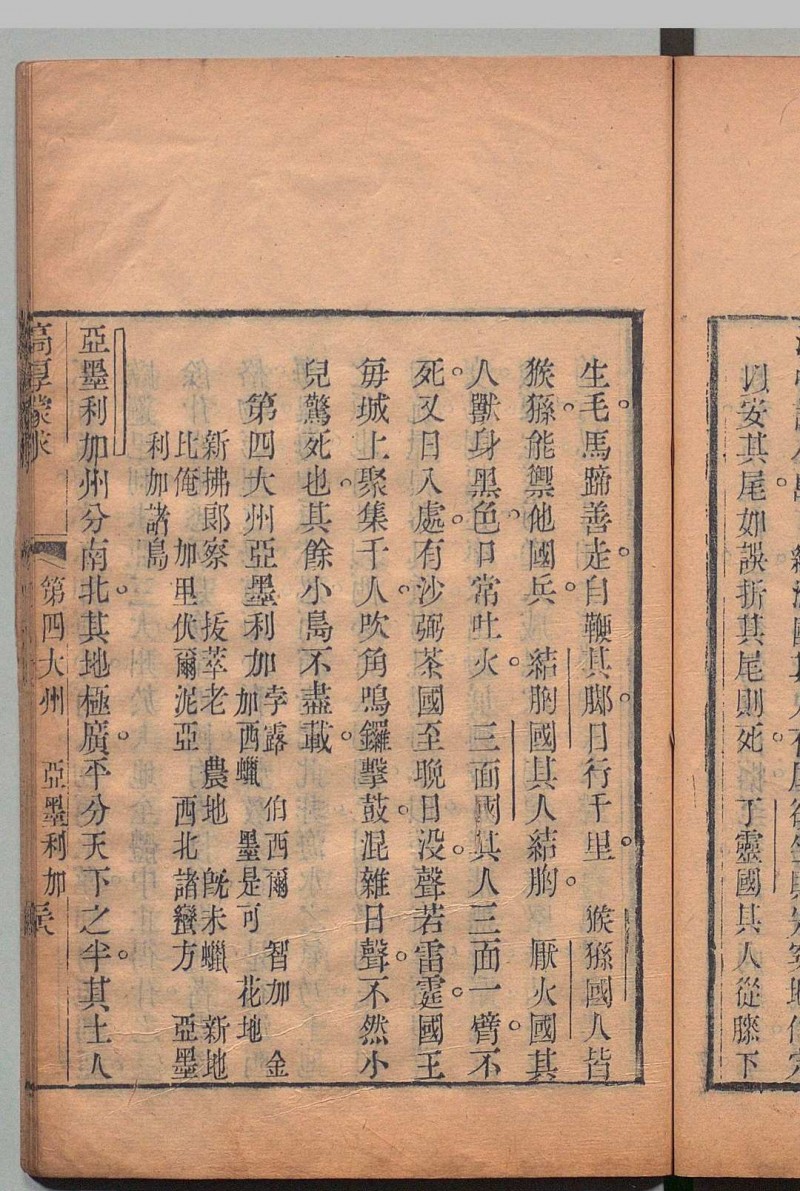 因安其尾如誤折其尾則死 丁靈國其人從膝下
生毛馬蹄善走自鞭其脚日行千里 猴猻國人皆
猴猻能禦他國兵 結胸國其人結胸 厭火國其
人獸身黑色口常吐火 三面國其人三面一臂不
死又日入處有沙弼茶國至晚日没聲若雷霆國王
每城上聚集千人吹角鳴鑼擊鼓混雜日聲不然小
兒驚死也其餘小島不盡載
第四大州亞墨利加
孛露 伯西爾 智加 金
加西蠟 墨是可 花地
新拂郎察 拔萃老 農地 旣未蠟 新地
比俺 加里伏爾泥亞 西北諸蠻方 亞墨
利加諸島
亞墨利加州分南北其地極廣平分天下之半其土人
高厚蒙求
第四大州 亞墨利加